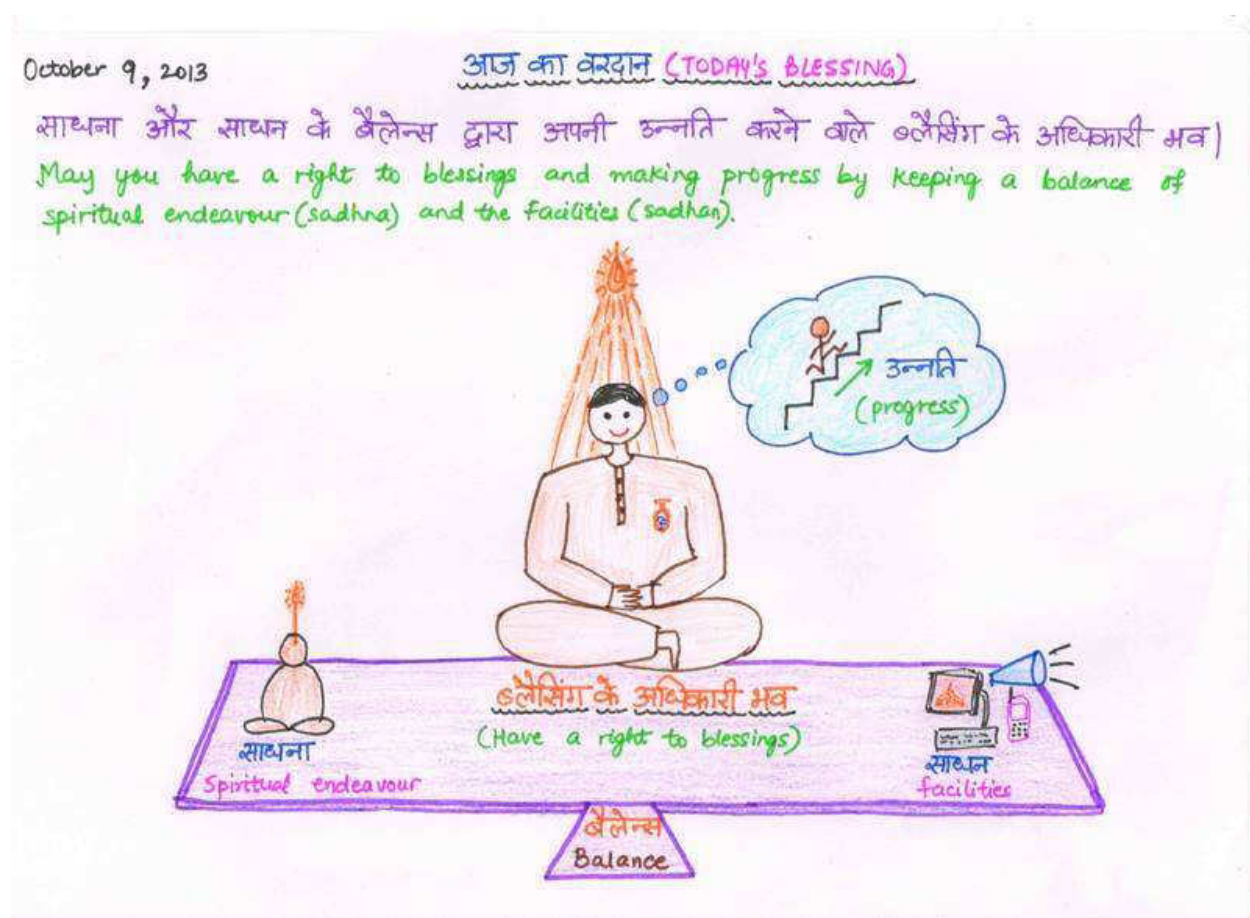 October 9, 2013
आज का वरदान (TODAY'S BLESSING)
साधना और साधन के बैलेन्स द्वारा अपनी उन्नति करने वाले ब्लैसिंग के अधिकारी भव|
May you have a right to blessings and making progress by keeping a balance of
spiritual endeavour (sadhna) and the facilities (sadhan).
उन्नति
(progress)
ब्लैसिंग के अधिकारी भव
(Have a right to blessings)
साधना
Spiritual endeavour
साधन
facilities
बैलेन्स
Balance